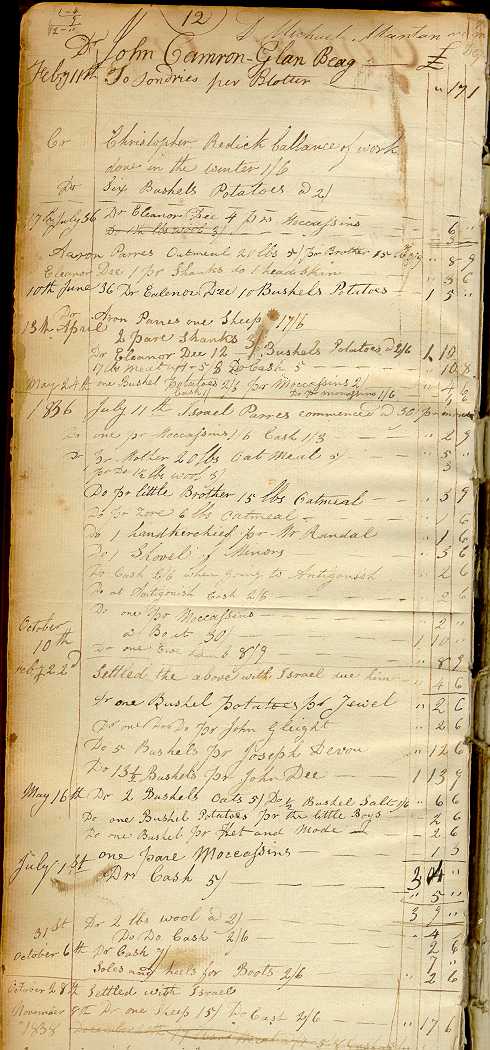 12
Dr John Camron - Glan Beag
Feby 11th To Sondries per Blotter " 17 1
Cr Christopher Redick ballance of work
done in the winter 1/6
Do Six Bushels Potatoes @ 2/
17th July 36 Dr Eleanor Dee 4 prs Moccassins 6 "
Aaron Parres Oatmeal 20 lbs 5/ pr Brother 15 lbs 3/9 " 8 9
Eleanor Dee 1 pr Shanks do 1 head skin 3 6
10th June 36 Dr Eulenor Dee 10 Bushels Potatoes 1 5 "
13th April Do Aron Parres one Sheep 17/6
2 pare Shanks 3/
Dr Eleannor Dee 12 Bushels Potatoes @ 2/6 1 10
17 lbs meat 5/8 Do Cash 5 10 8
May 24th one Bushel Potatoes 2/6 pr Moccassins 2/ 4 6
Cash 1/
1836 July 11th Israel Parres commenced @ 30/ pr
Do one pr Moccassins 1/6 Cash 1/3 " 2 9
Dr pr Mother 20 lbs Oat Meal 5/ " 5 "
pr Do 1½ lbs wool 3/ 3
Do pr little Brother 15 lbs Oatmeal " 3 9
Do pr 6 lbs Oatmeal 1 6
Do 1 handkerchief pr Mr Randal " 1 6
Do 1 Shovel of Minors " 3 6
Do Cash 2/6 when going to Antigonish " 2 6
Do at Antigonish Cash 2/6 " 2 6
Do one pr Moccassins " 2 "
October 10th a Boat 30/ 1 10 "
Do one Ewe 8/9 " 8 9
Feby 22d Settled the above with Israel due him " 4 6
Dr one Bushel Potatoes pr Jewel " 2 6
Dr one Do Do pr John Gleight " 2 6
Do 5 Bushels pr Joseph Devou " 12 6
Do 13½ Bushels pr John Dee 1 13 9
May 16th Dr 2 Bushels Oats 5/ Do ½ Bushel Salt 1/6 " 6 6
Do one Bushel Potatoes for the little Boys 2 6
Do one Bushel pr Ket and Mode 2 6
July 1st one pare Moccassins 1 3
Dr Cash 5/ " 5 "
3 9 "
31st Dr 2 lbs wool @ 2/ 4
Do Do Cash 2/6 2 6
October 6th Dr Cash 7/ 7 "
Soles and heels for Boots 2/6 " 2 6
October 28th Settled with Israel
November 9th Dr one Sheep 15/ Do Cash 2/6 " 17 6
1838